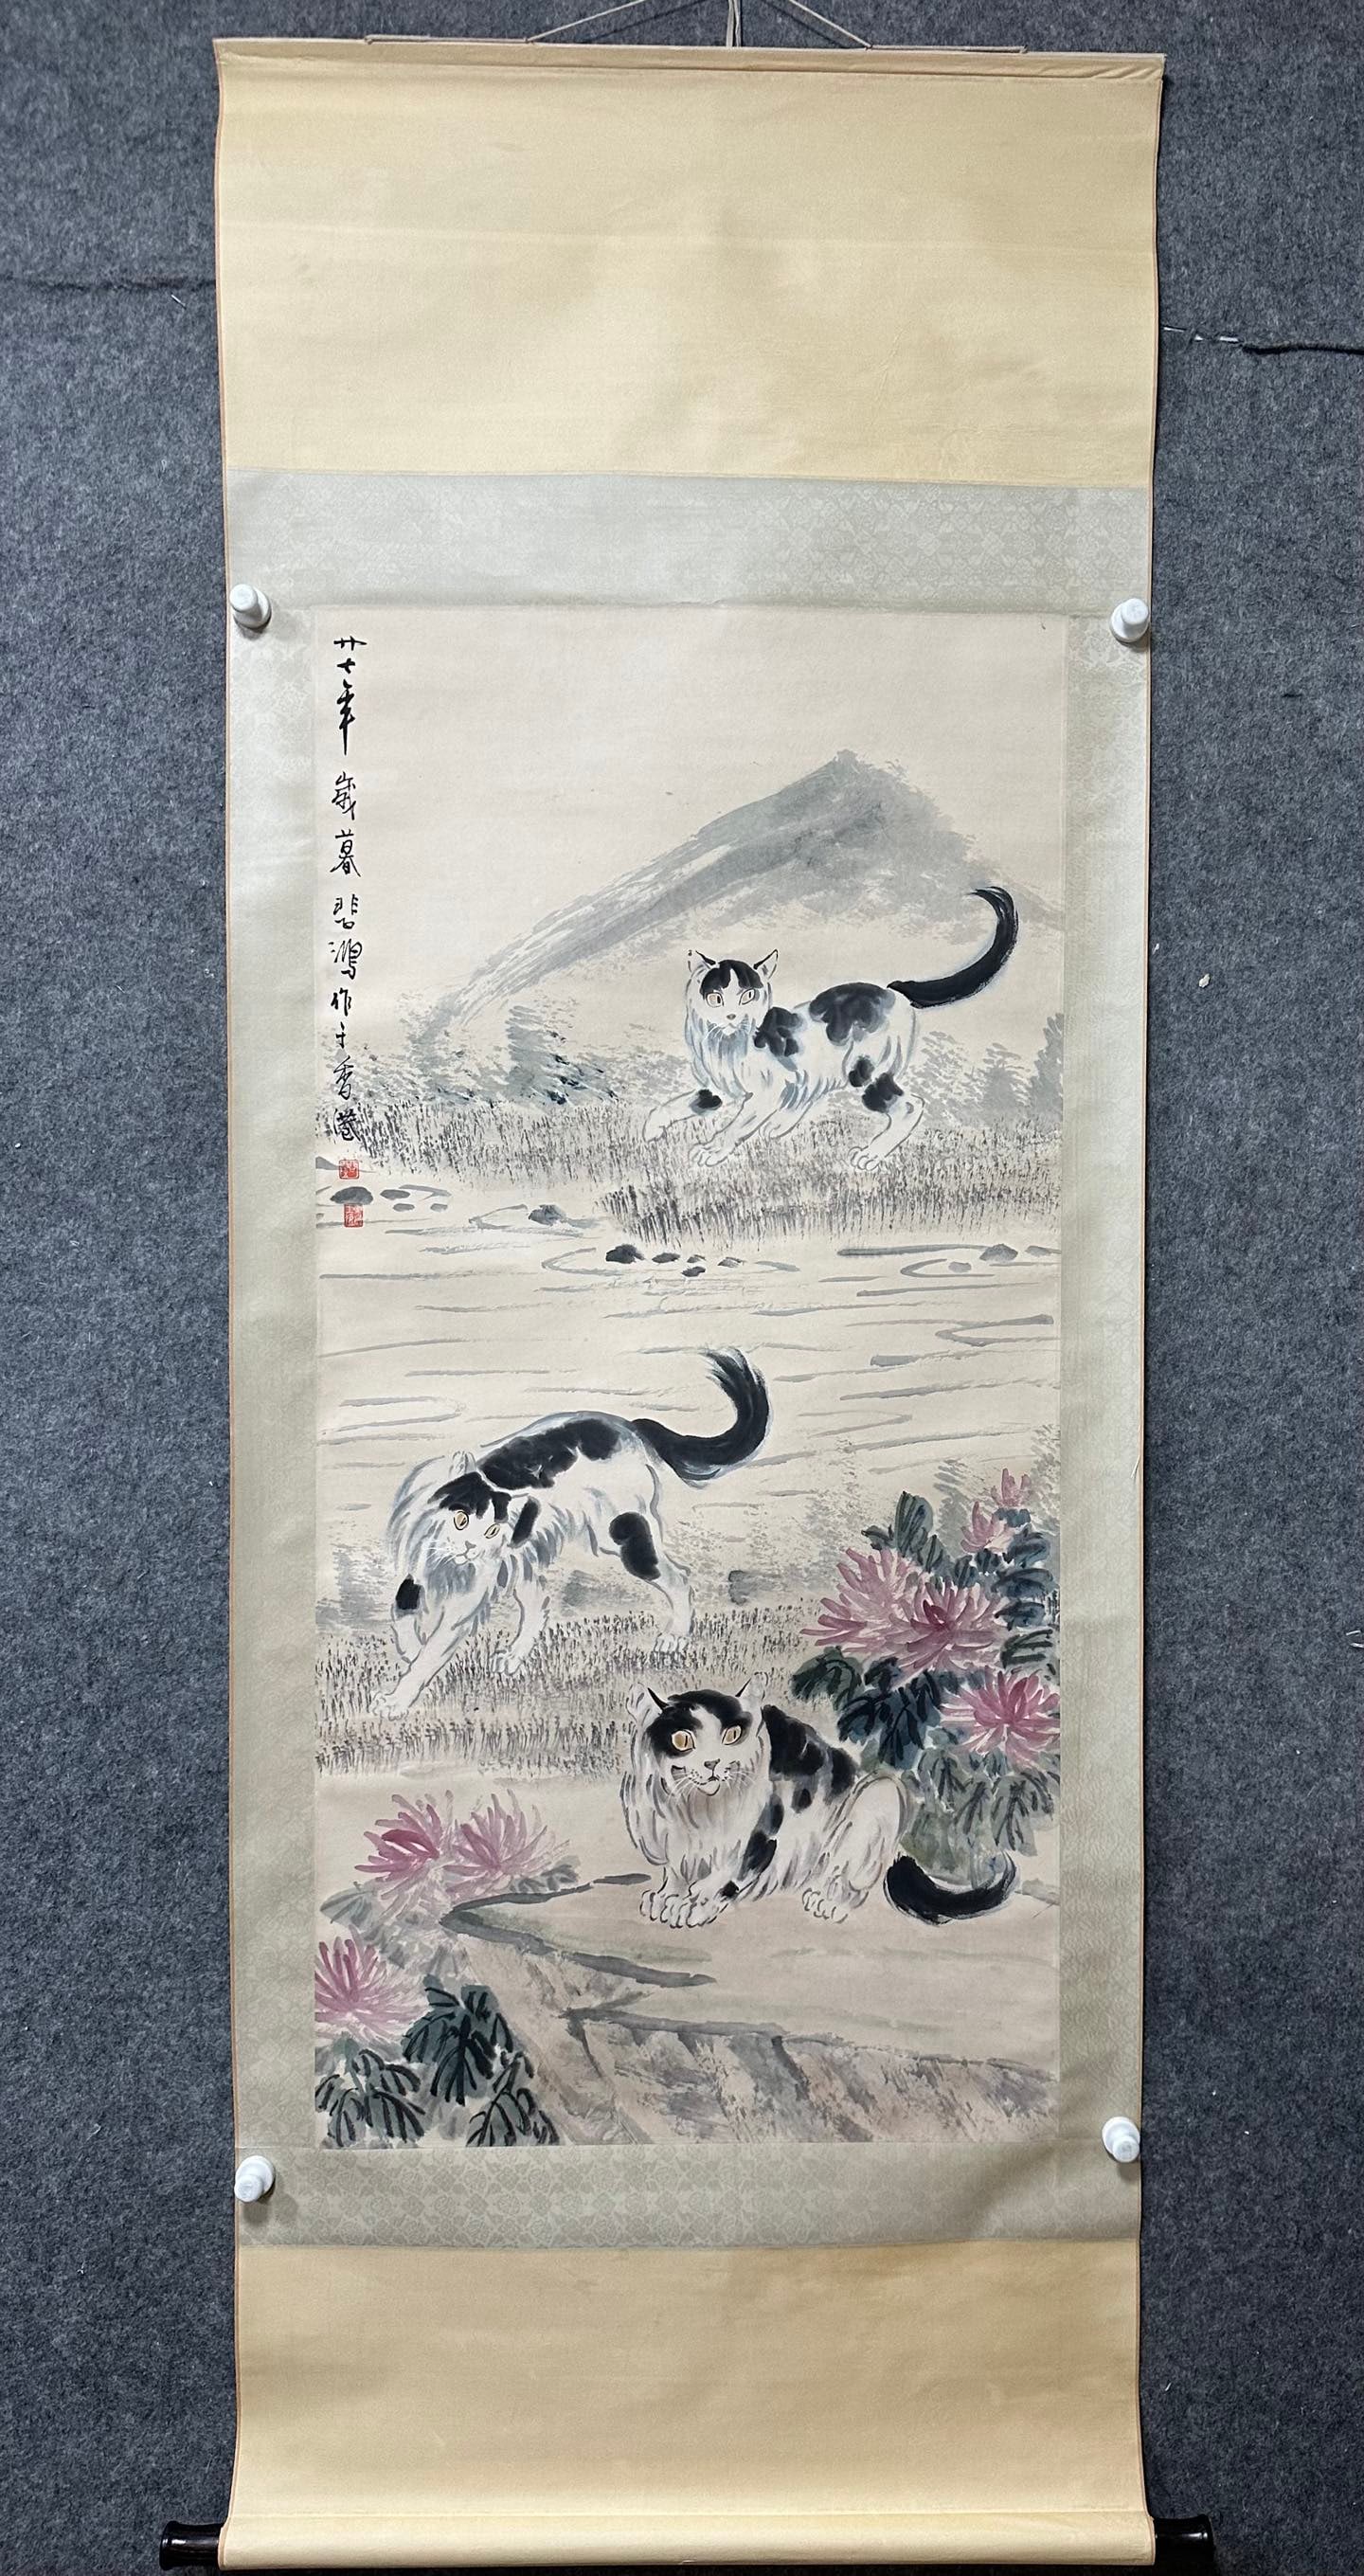 廿七年歲暮悲鴻作于香港